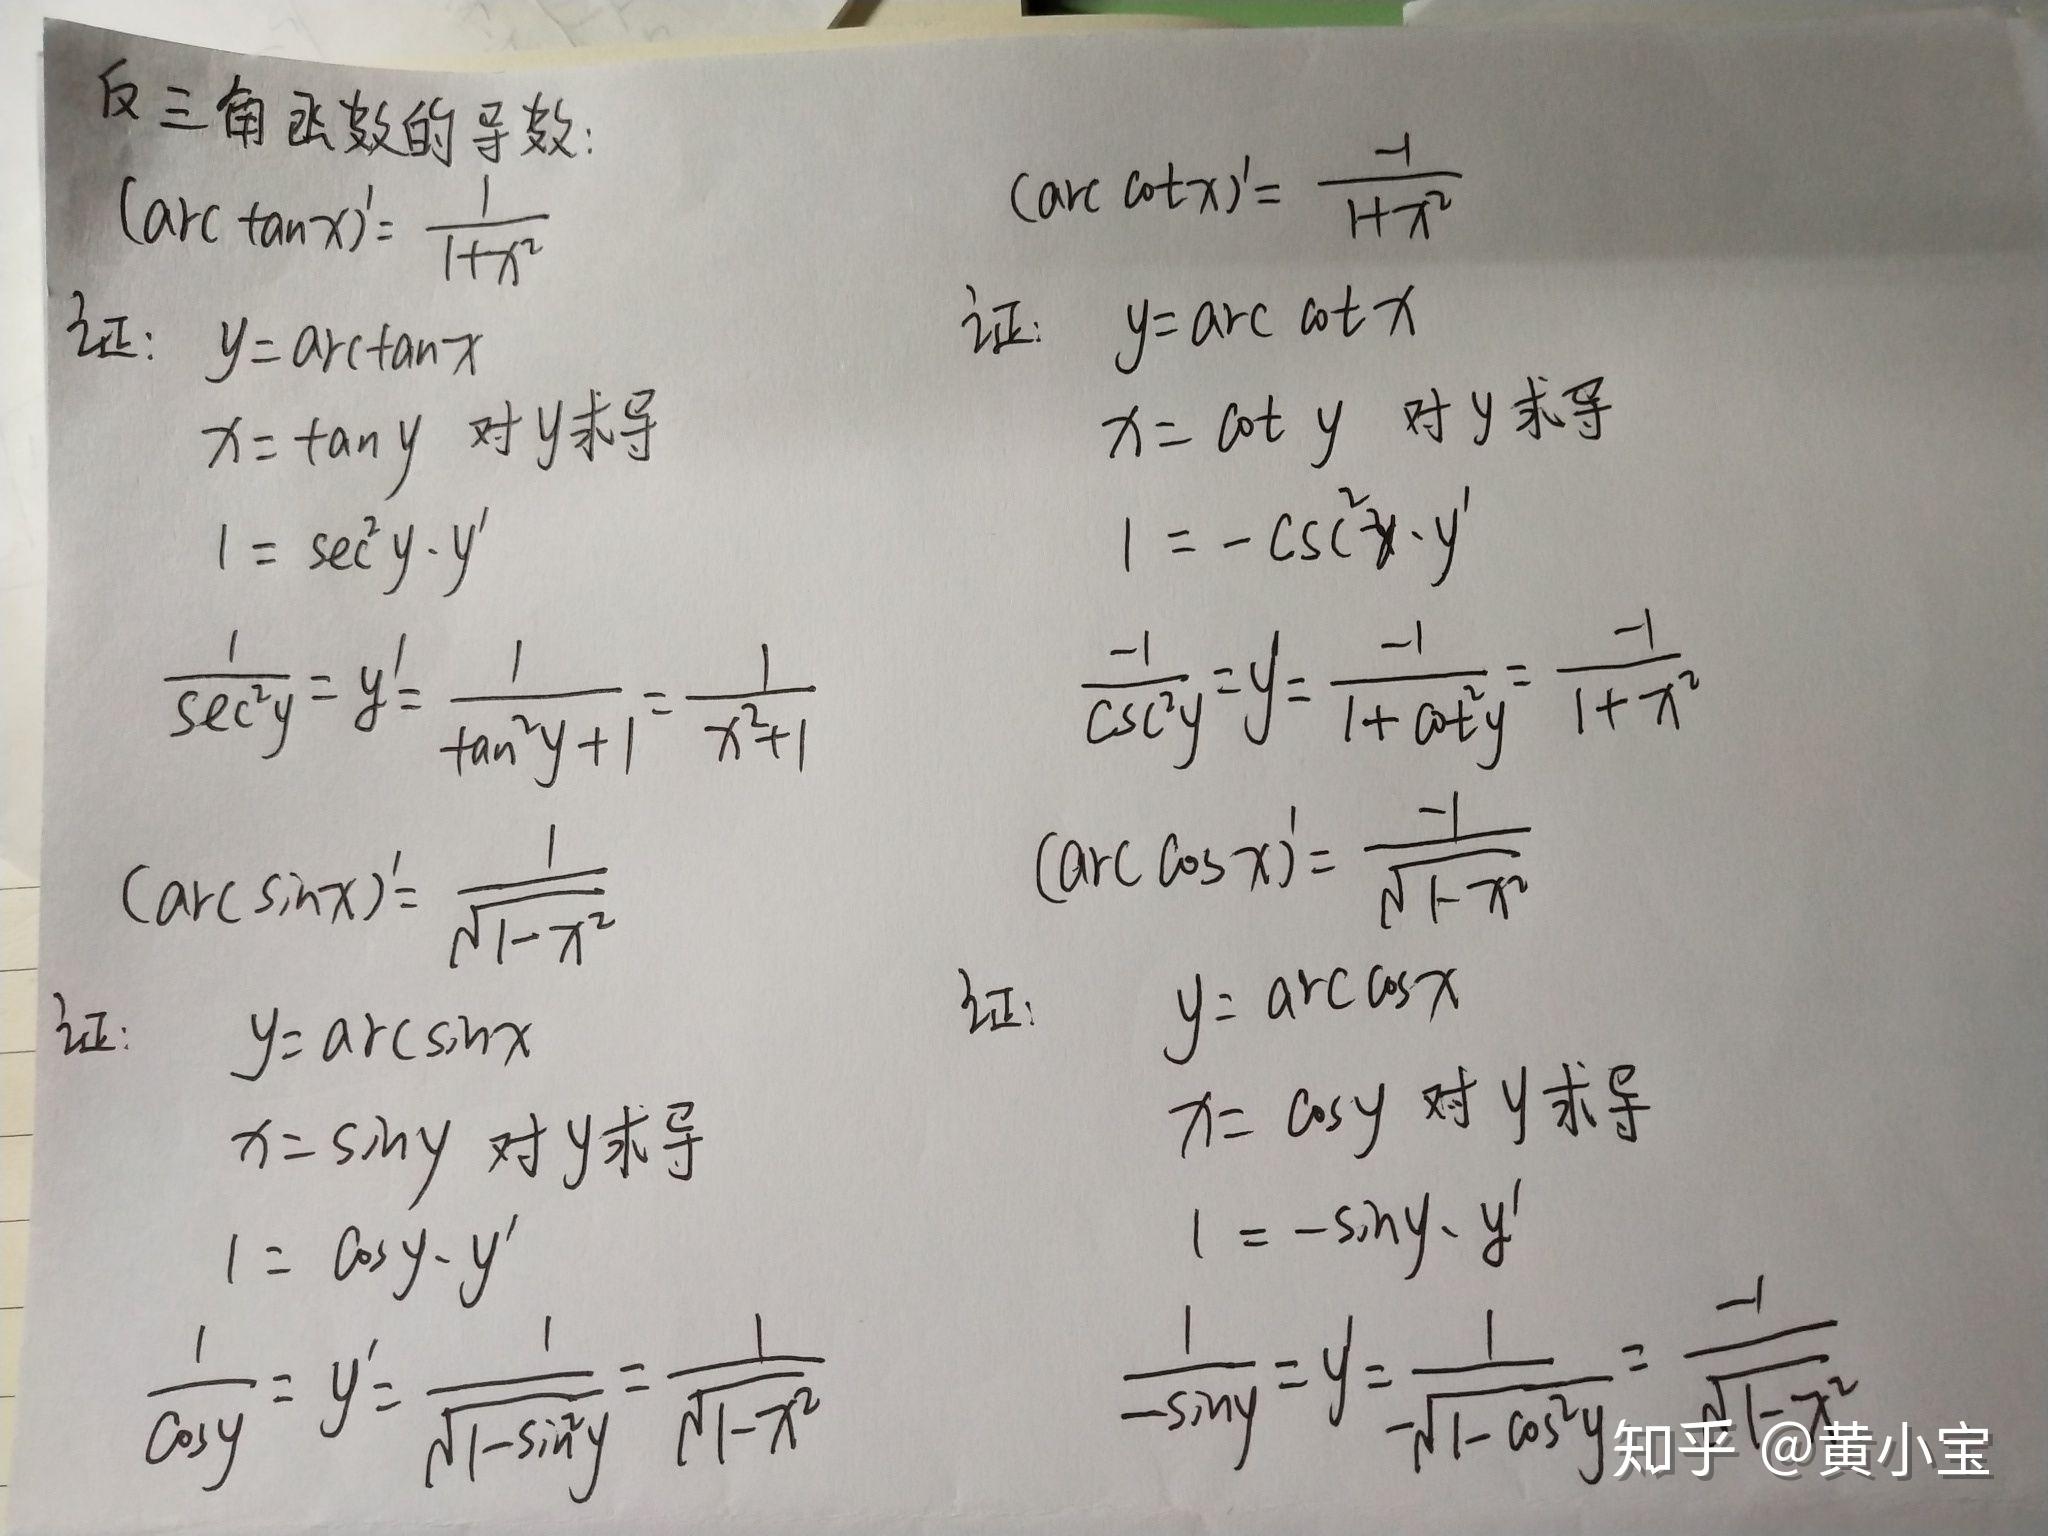 反三角函数的导数:
(arc tanx)'= 1/(1+x²)
证: y=arctanx
x=tany 对y求导
1 = sec²y·y'
1/sec²y = y' = 1/(tan²y+1) = 1/(x²+1)
(arcsinx)'= 1/√(1-x²)
证: y=arcsinx
x=siny 对y求导
1 = cosy·y'
1/cosy = y' = 1/√(1-sin²y) = 1/√(1-x²)
(arc cotx)'= -1/(1+x²)
证: y=arc cotx
x= cot y 对y求导
1 = -csc²y·y'
-1/csc²y = y' = -1/(1+cot²y) = -1/(1+x²)
(arc cosx)'= -1/√(1-x²)
证: y= arccosx
x= cosy 对y求导
1 = -siny·y'
1/-siny = y' = 1/-√(1-cos²y) = -1/√(1-x²)
知乎 @黄小宝